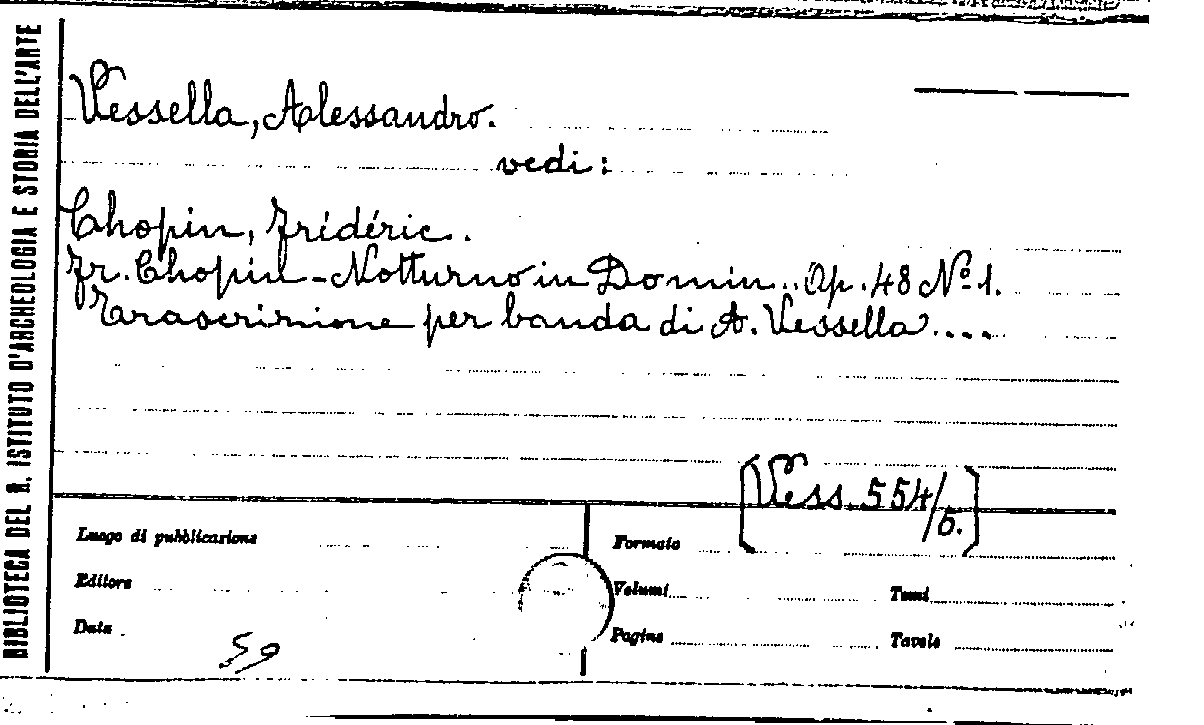 BIBLIOTECA DEL R. ISTITUTO D'ARCHEOLOGIA E STORIA DELL'ARTE
Vessella, Alessandro.
vedi:
Chopin, Frédéric.
Fr. Chopin - Notturno in Do min.. Op. 48 Nº 1.
Trascrizione per banda di A. Vessella....
[Vess. 554/5.]
Luogo di pubblicazione
Formato
Editore
Volumi
Tomi
Data
Pagine
Tavole
59